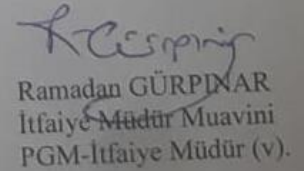 R Gürpınar
Ramadan GÜRPINAR
İtfaiye Müdür Muavini
PGM-İtfaiye Müdür (v).